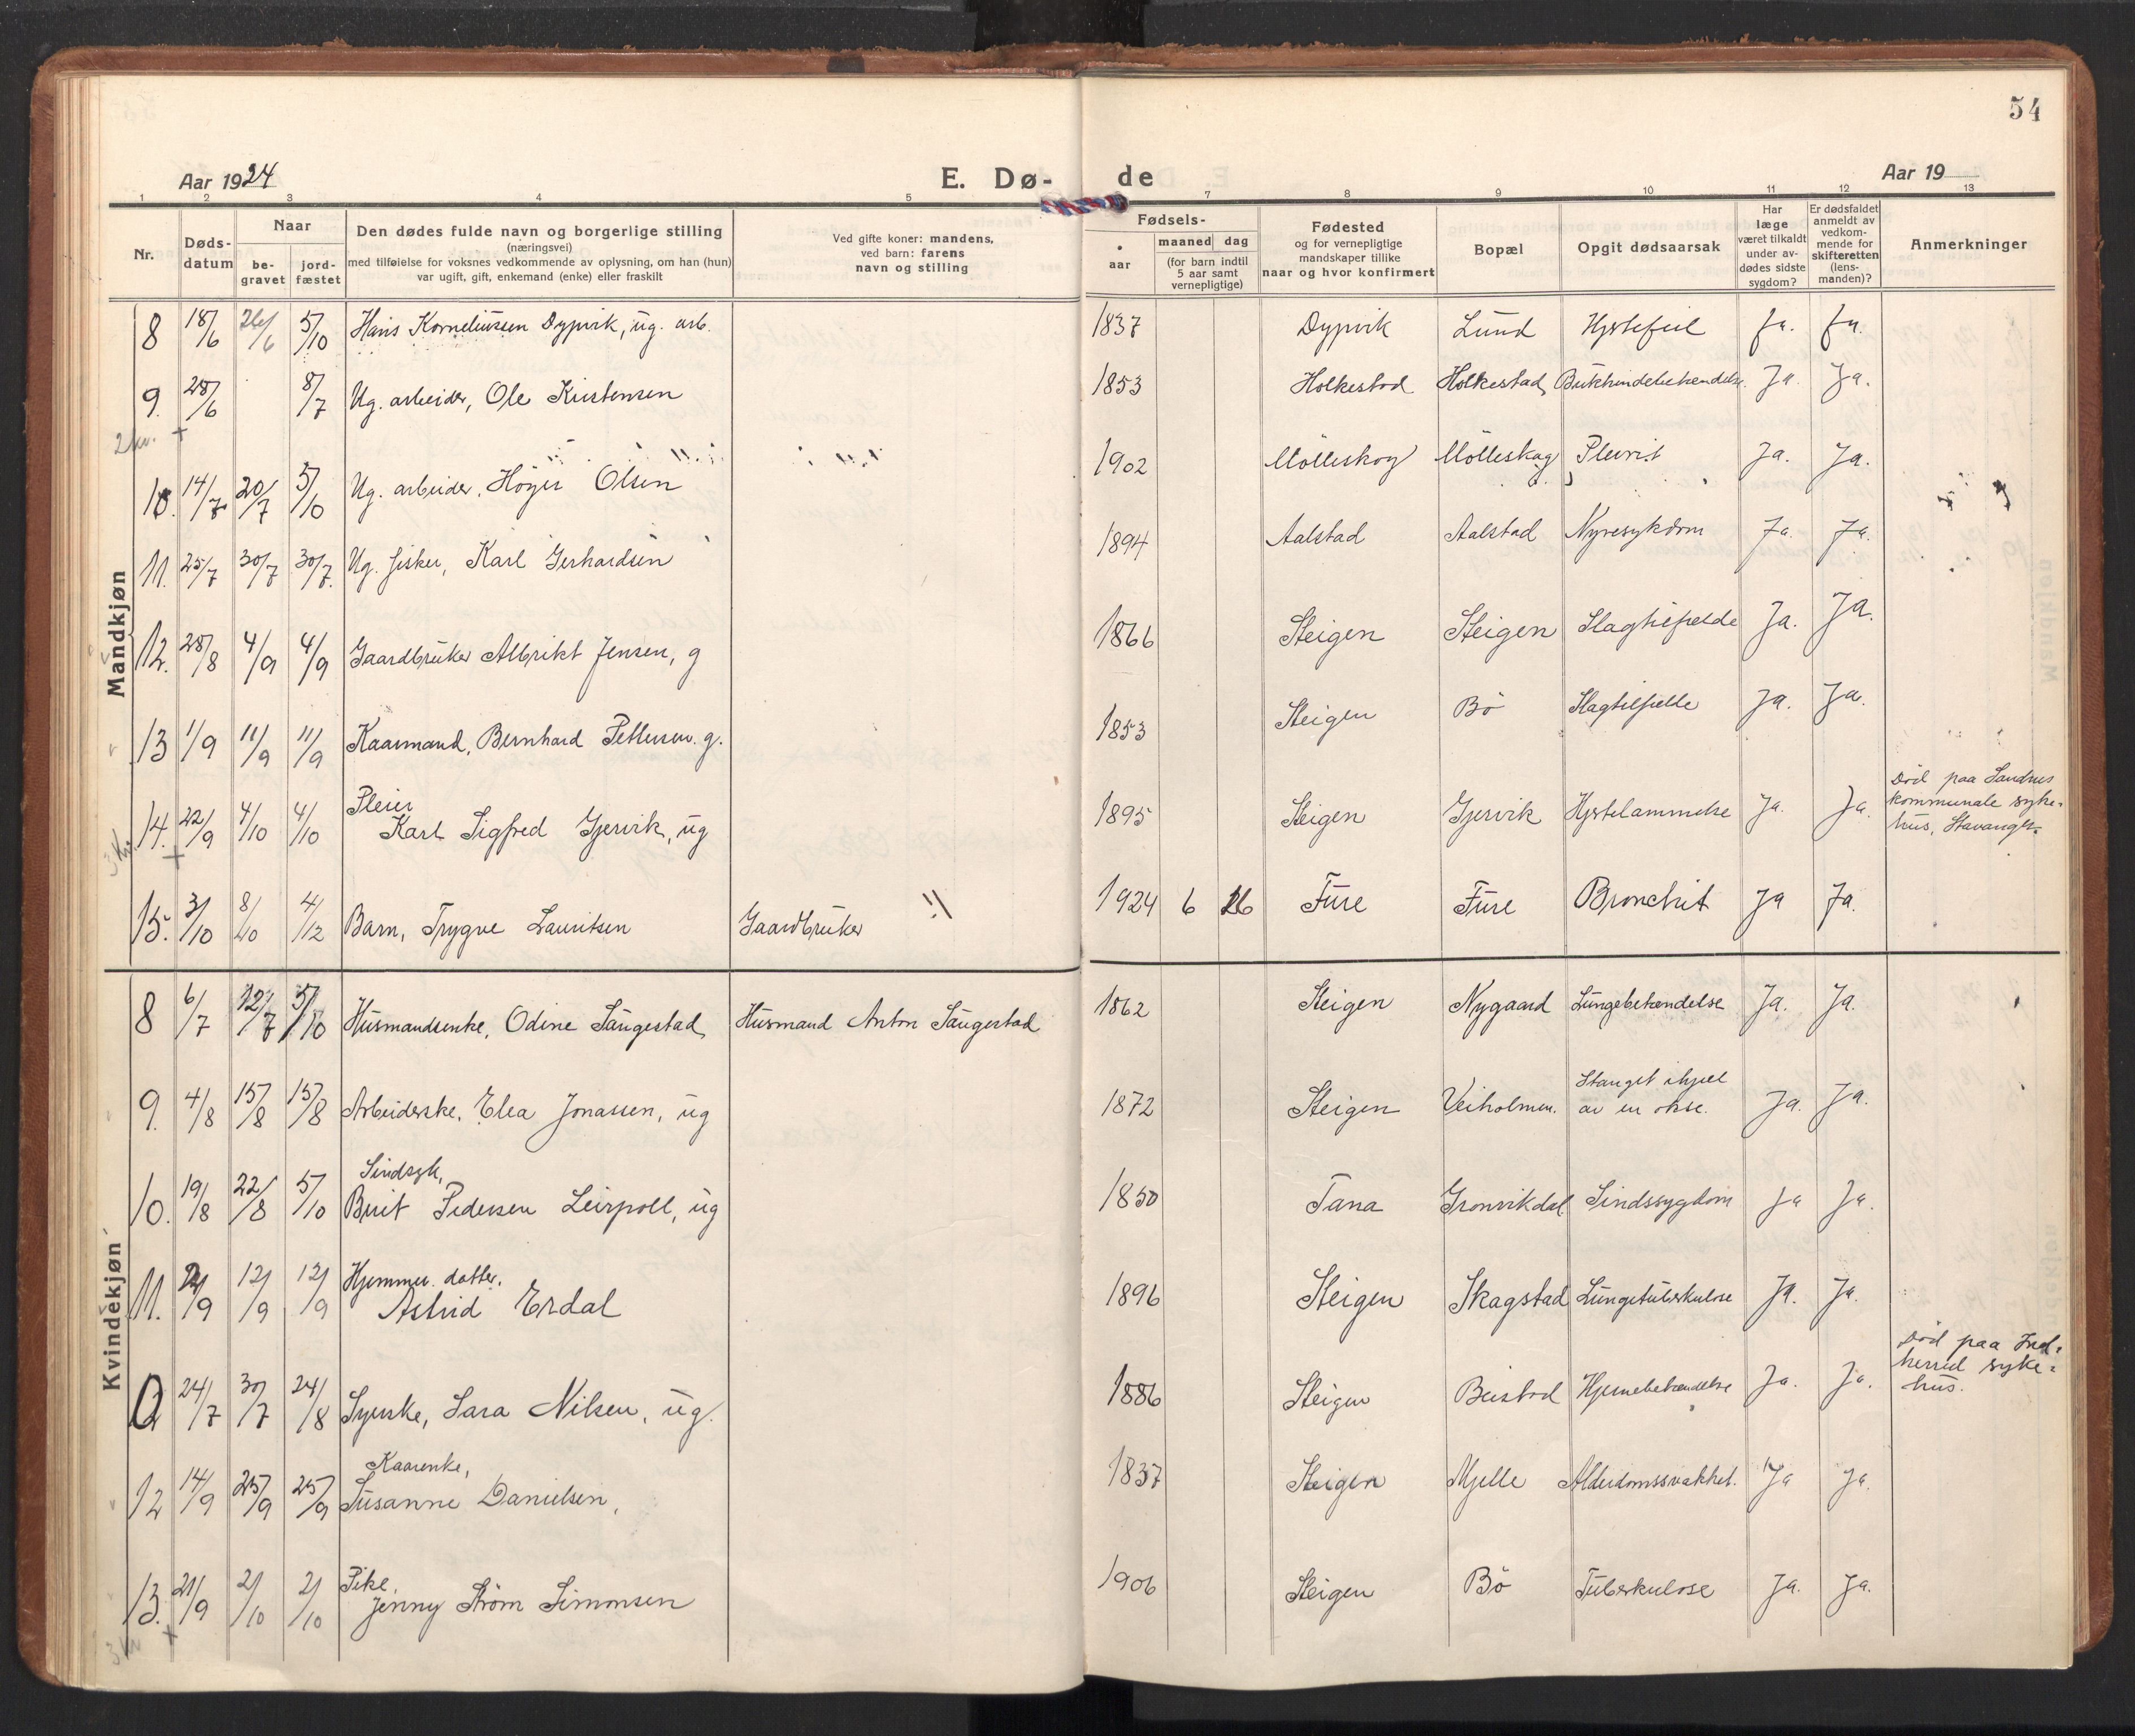 54
Aar 1924 E. Dø- de Aar 19
1 2 3 4 5 7 8 9 10 11 12 13
Nr.
Døds-
datum
Naar
be-
gravet
jord-
fæstet
Den dødes fulde navn og borgerlige stilling
(næringsvei)
med tilføielse for voksnes vedkommende av oplysning, om han (hun)
var ugift, gift, enkemand (enke) eller fraskilt
Ved gifte koner: mandens,
ved barn: farens
navn og stilling
Fødsels-
aar
maaned dag
(for barn indtil
5 aar samt
vernepligtige)
Fødested
og for vernepligtige
mandskaper tillike
naar og hvor konfirmert
Bopæl
Opgit dødsaarsak
Har
læge
været tilkaldt
under av-
dødes sidste
sygdom?
Er dødsfaldet
anmeldt av
vedkom-
mende for
skifteretten
(lens-
manden)?
Anmerkninger
Mandkjøn
8 18/6 26/6 5/10 Hans Korneliussen Dypvik, ug. arb. 1837 Dypvik Lund Hjertefeil Ja. Ja.
9. 28/6 8/7 Ug. arbeider, Ole Kristensen 1853 Holkestad Holkestad Bukhindebetændelse Ja. Ja.
2 kr. +
10. 14/7 20/7 5/10 Ug. arbeider, Höyer Olsen 1902 Mölleskog Mölleskog Plevrit Ja. Ja.
11. 25/7 30/7 30/7. Ug. fisker, Karl Gerhardsen 1894 Aalstad Aalstad Nyresykdom Ja. Ja.
12. 28/8 4/9 4/9 Gaardbruker Albrikt Jensen, g 1866 Steigen Steigen Slagtilfælde Ja. Ja.
13 1/9 11/9 11/9 Kaarmand, Bernhard Pettersen. g. 1853 Steigen Bö Slagtilfælle Ja. Ja.
14. 22/9 4/10 4/10 Pleier
Karl Sigfred Gjervik, ug 1895 Steigen Gjervik Hjertelammelse Ja. Ja. Död paa Sandnes
kommunale syke-
hus, Stavanger.
3 kr. +
15. 3/10 8/10 4/12 Barn, Trygve Lauritsen Gaardbruker 1924 6 26 Fure Fure Bronchit Ja Ja.
Kvindekjøn
8 6/7 12/7 5/10 Husmandsenke, Odine Saugestad Husmand Anton Saugestad 1862 Steigen Nygaard Lungebetændelse Ja. Ja.
9. 4/8 15/8 15/8 Arbeiderske, Elea Jonassen, ug 1872 Steigen Veiholmen. Stanget ihjæl
av en okse. Ja. Ja.
10. 19/8 22/8 5/10 Sindsyk,
Berit Pedersen Leirpoll, ug 1850 Tana Gronvikdal Sindssygdom Ja Ja.
11. 2/9 12/9 12/9 Hjemmev. datter,
Astrid Erdal 1896 Steigen Skagstad Lungetuberkulose Ja. Ja.
24/7 30/7 24/8 Syerske, Sara Nilsen, ug. 1886 Steigen Beistad Hjernebetændelse Ja. Ja. Död paa Ind-
herred syke-
hus.
12 14/9 25/9 25/9 Kaarenke,
Susanne Danielsen, 1837 Steigen Mjelle Alderdomssvakhet. Ja Ja.
13. 21/9 2/10 2/10 Pike,
Jenny Ström Simonsen 1906 Steigen Bö Tuberkulose Ja. Ja.
3 kr +